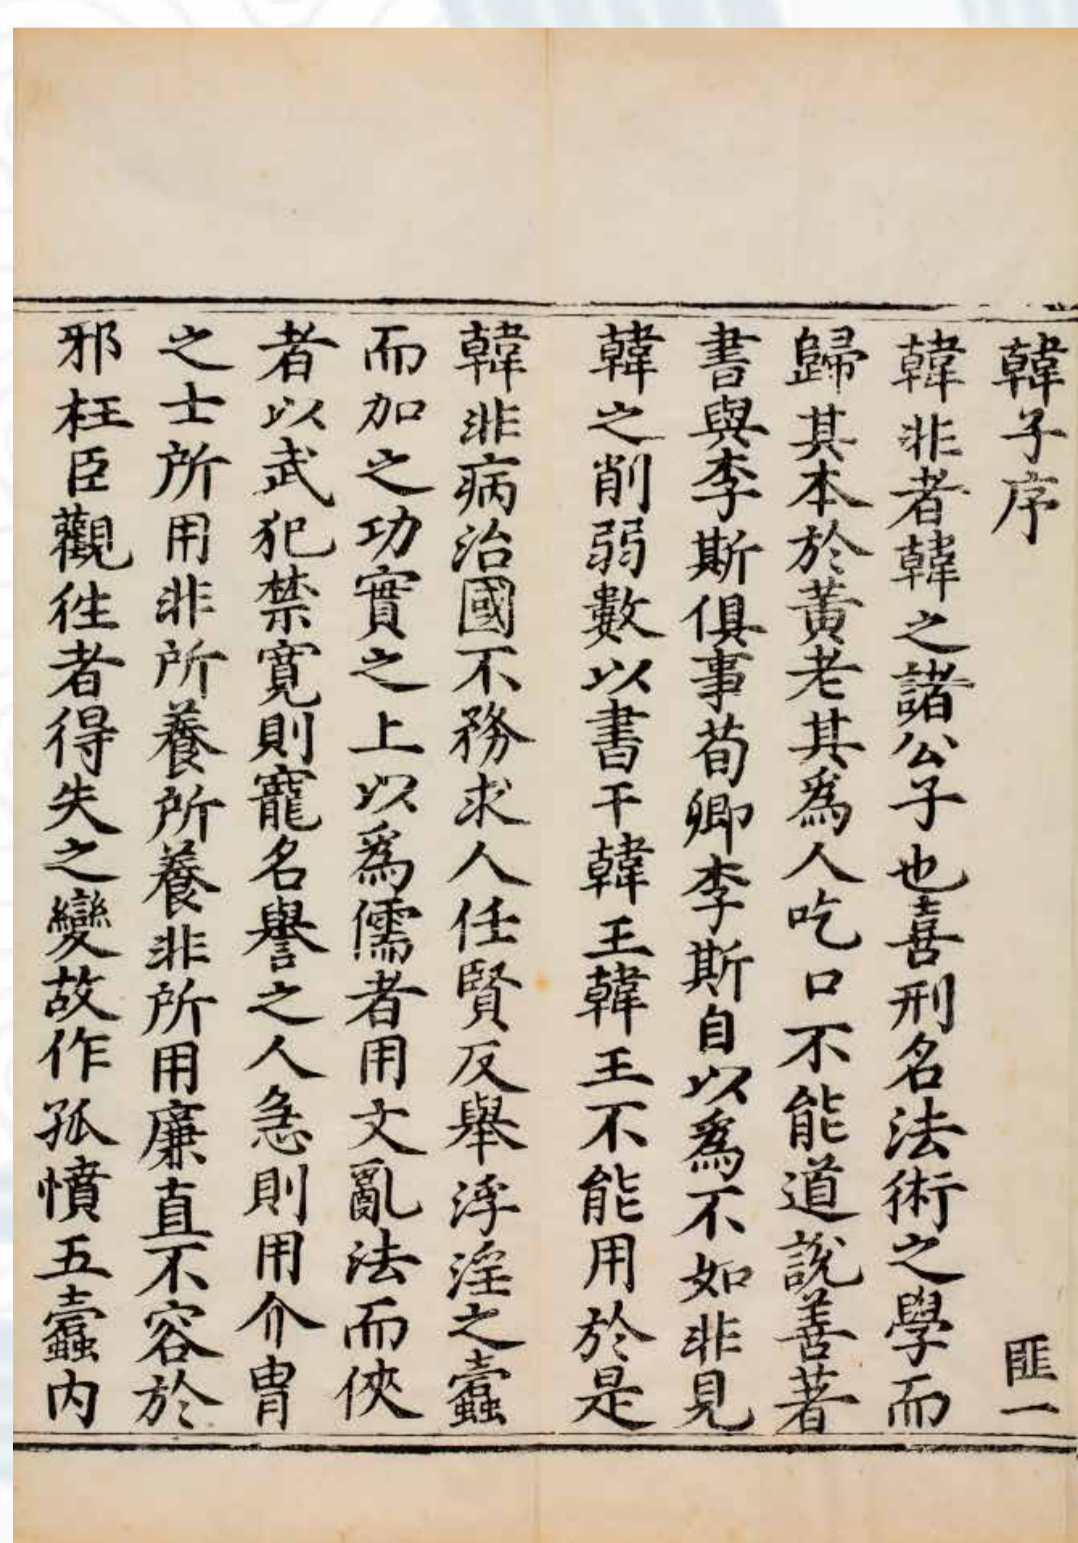 韓子序 匪一
韓非者韓之諸公子也喜刑名法術之學而
歸其本於黃老其爲人吃口不能道說善著
書與李斯俱事荀卿李斯自以爲不如非見
韓之削弱數以書干韓王韓王不能用於是
韓非病治國不務求人任賢反舉浮淫之蠹
而加之功實之上以爲儒者用文亂法而俠
者以武犯禁寬則寵名譽之人急則用介胄
之士所用非所養所養非所用廉直不容於
邪枉臣觀徃者得失之變故作孤憤五蠹内